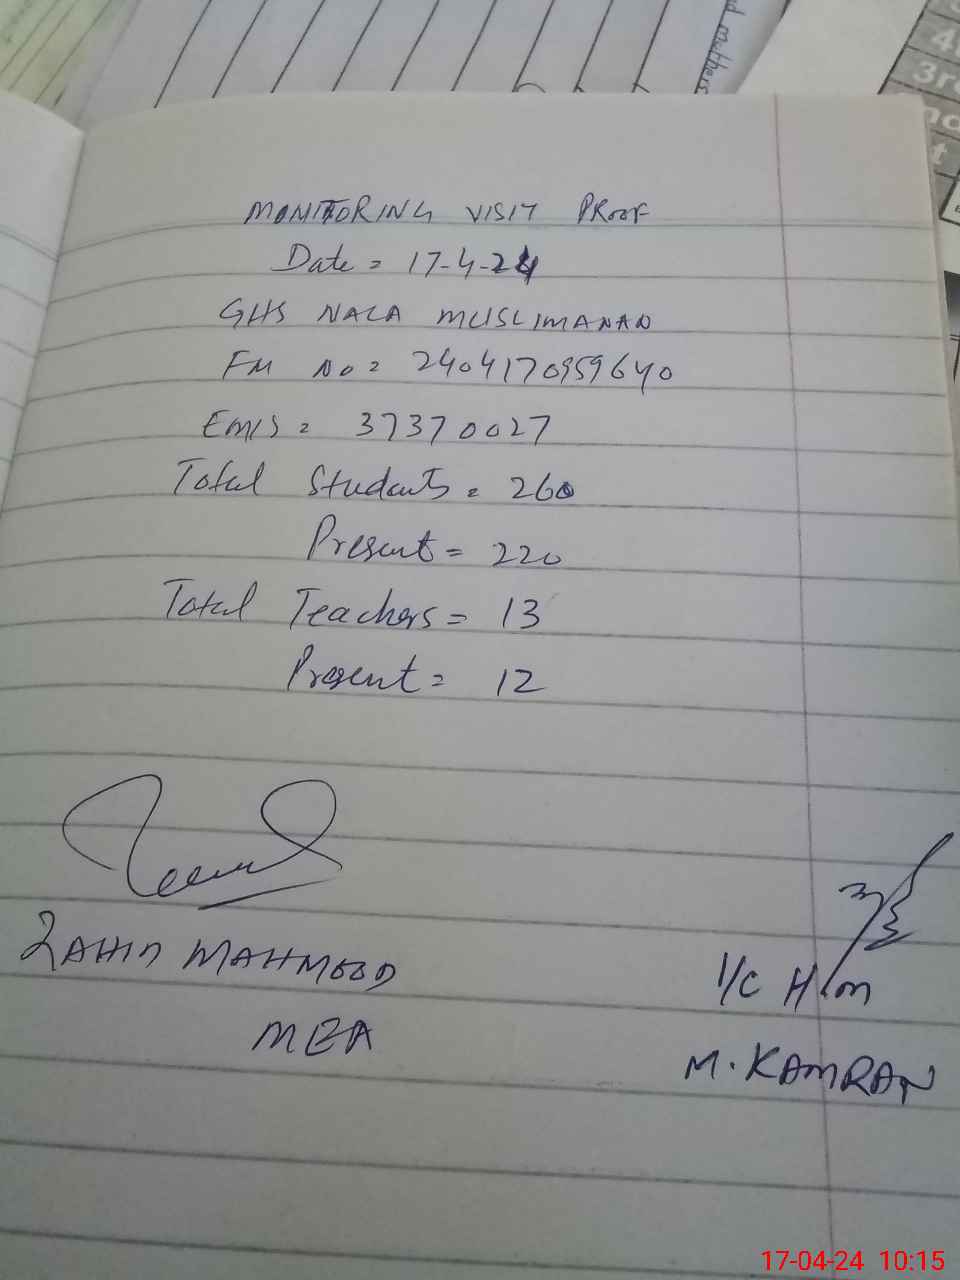 d mothers
4
3r
nd
t
MONITORING VISIT PROOF
Date = 17-4-24
GHS NALA MUSLIMANAN
FM NO = 2404170959640
EMIS = 37370027
Total Students = 260
Present = 220
Total Teachers = 13
Present = 12
ZAHID MAHMOOD
MEA
I/C H/m
M. KAMRAN
17-04-24 10:15